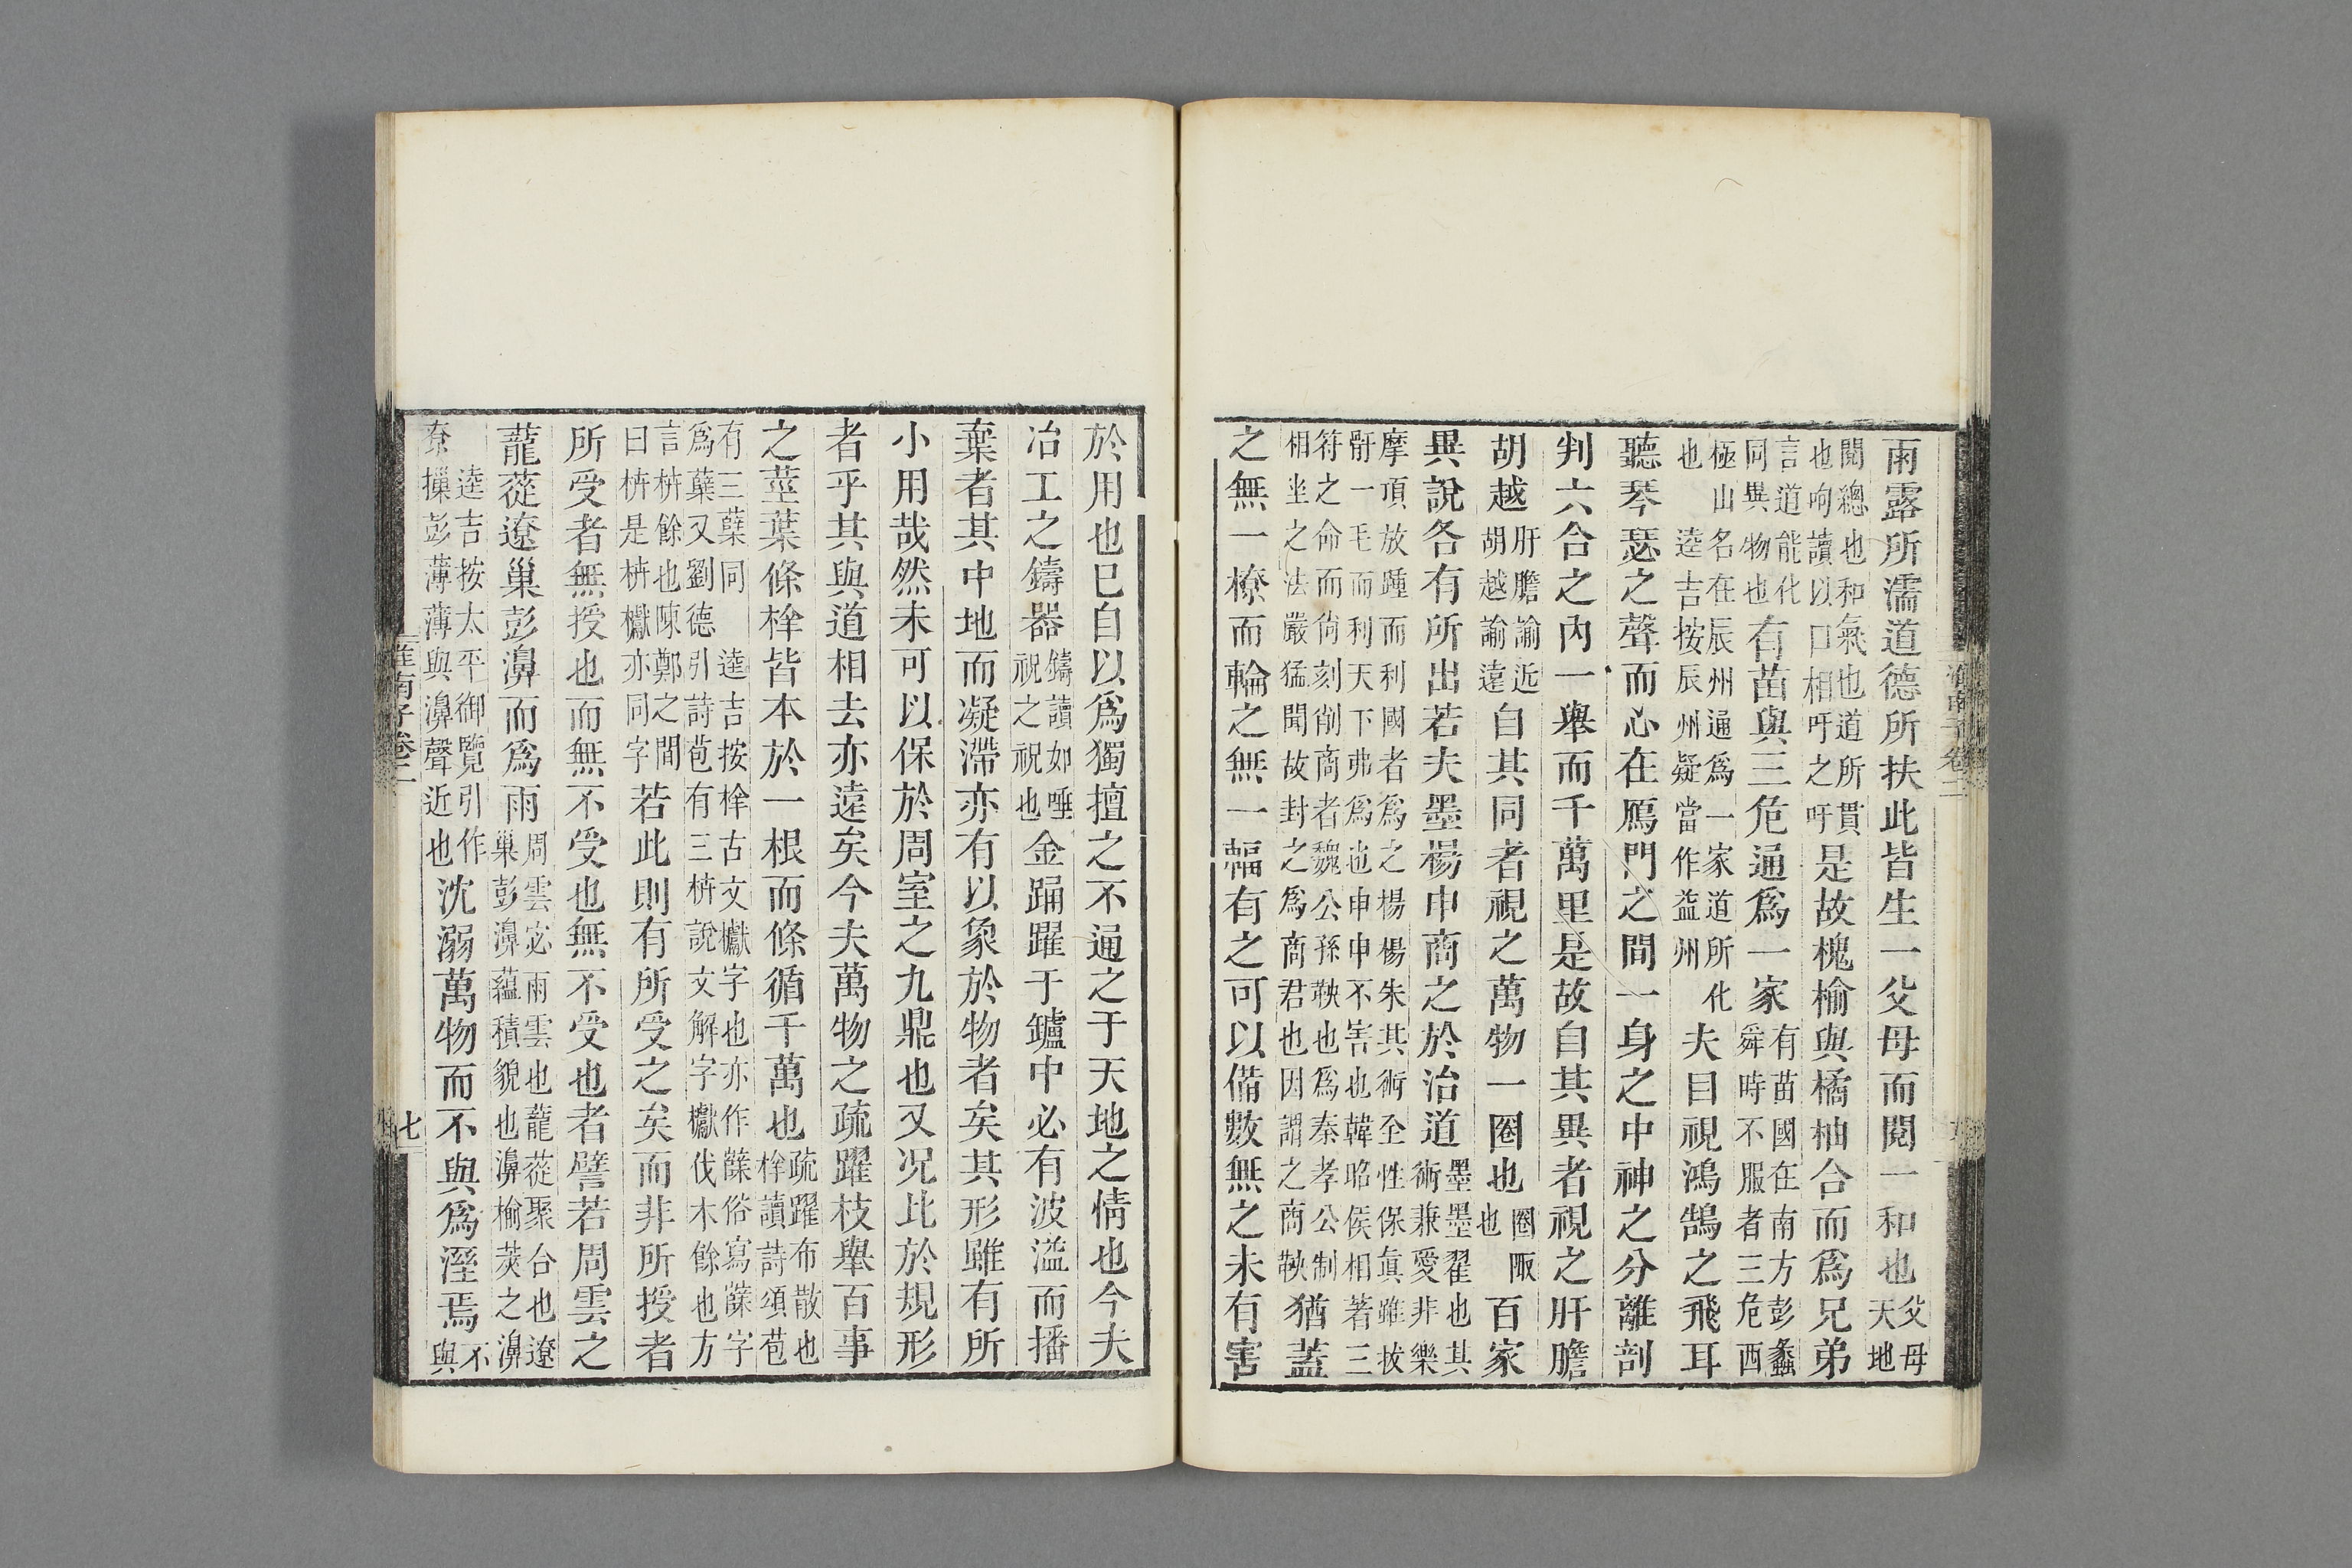 雨露所濡道德所扶此皆生一父母而閱一和也父母
天地
閱總也和氣也道所貫
也呴讀以口相吁之吁是故槐榆與橘柚合而爲兄弟
言道能化
同異物也有苗與三危通爲一家有苗國在南方彭蠡
舜時不服者三危西
極山名在辰州通爲一家道所化
也 逵吉按辰州疑當作益州夫目視鴻鵠之飛耳
聽琴瑟之聲而心在鴈門之間一身之中神之分離剖
判六合之內一舉而千萬里是故自其異者視之肝膽
胡越肝膽諭近
胡越諭遠自其同者視之萬物一圈也圈陬
也百家
異說各有所出若夫墨楊申商之於治道墨墨翟也其
術兼愛非樂
摩頂放踵而利國者爲之楊楊朱其術全性保眞雖拔
骭一毛而利天下弗爲也申申不害也韓昭侯相著三
符之命而尚刻削商者魏公孫鞅也爲秦孝公制
相坐之法嚴猛聞故封之爲商君也因謂之商鞅猶蓋
之無一橑而輪之無一輻有之可以備數無之未有害
於用也巳自以爲獨擅之不通之于天地之情也今夫
冶工之鑄器鑄讀如唾
祝之祝也金踊躍于鑪中必有波溢而播
棄者其中地而凝滯亦有以象於物者矣其形雖有所
小用哉然未可以保於周室之九鼎也又况比於規形
者乎其與道相去亦遠矣今夫萬物之疏躍枝舉百事
之莖葉條桻皆本於一根而條循千萬也疏躍布散也
桻讀詩頌苞
有三蘖同 逵吉按桻古文巘字也亦作蘖俗寫蘖字
爲蘖又劉德引詩苞有三枿說文解字巘伐木餘也方
言枿餘也陳鄭之間
曰枿是枿巘亦同字若此則有所受之矣而非所授者
所受者無授也而無不受也無不受也者譬若周雲之
蘢蓯遼巢彭濞而爲雨周雲密雨雲也蘢蓯聚合也遼
巢彭濞蘊積貌也濞榆莢之濞
逵吉按太平御覽引作
尞摷彭薄薄與濞聲近也沈溺萬物而不與爲溼焉不
與
淮南子卷二
七